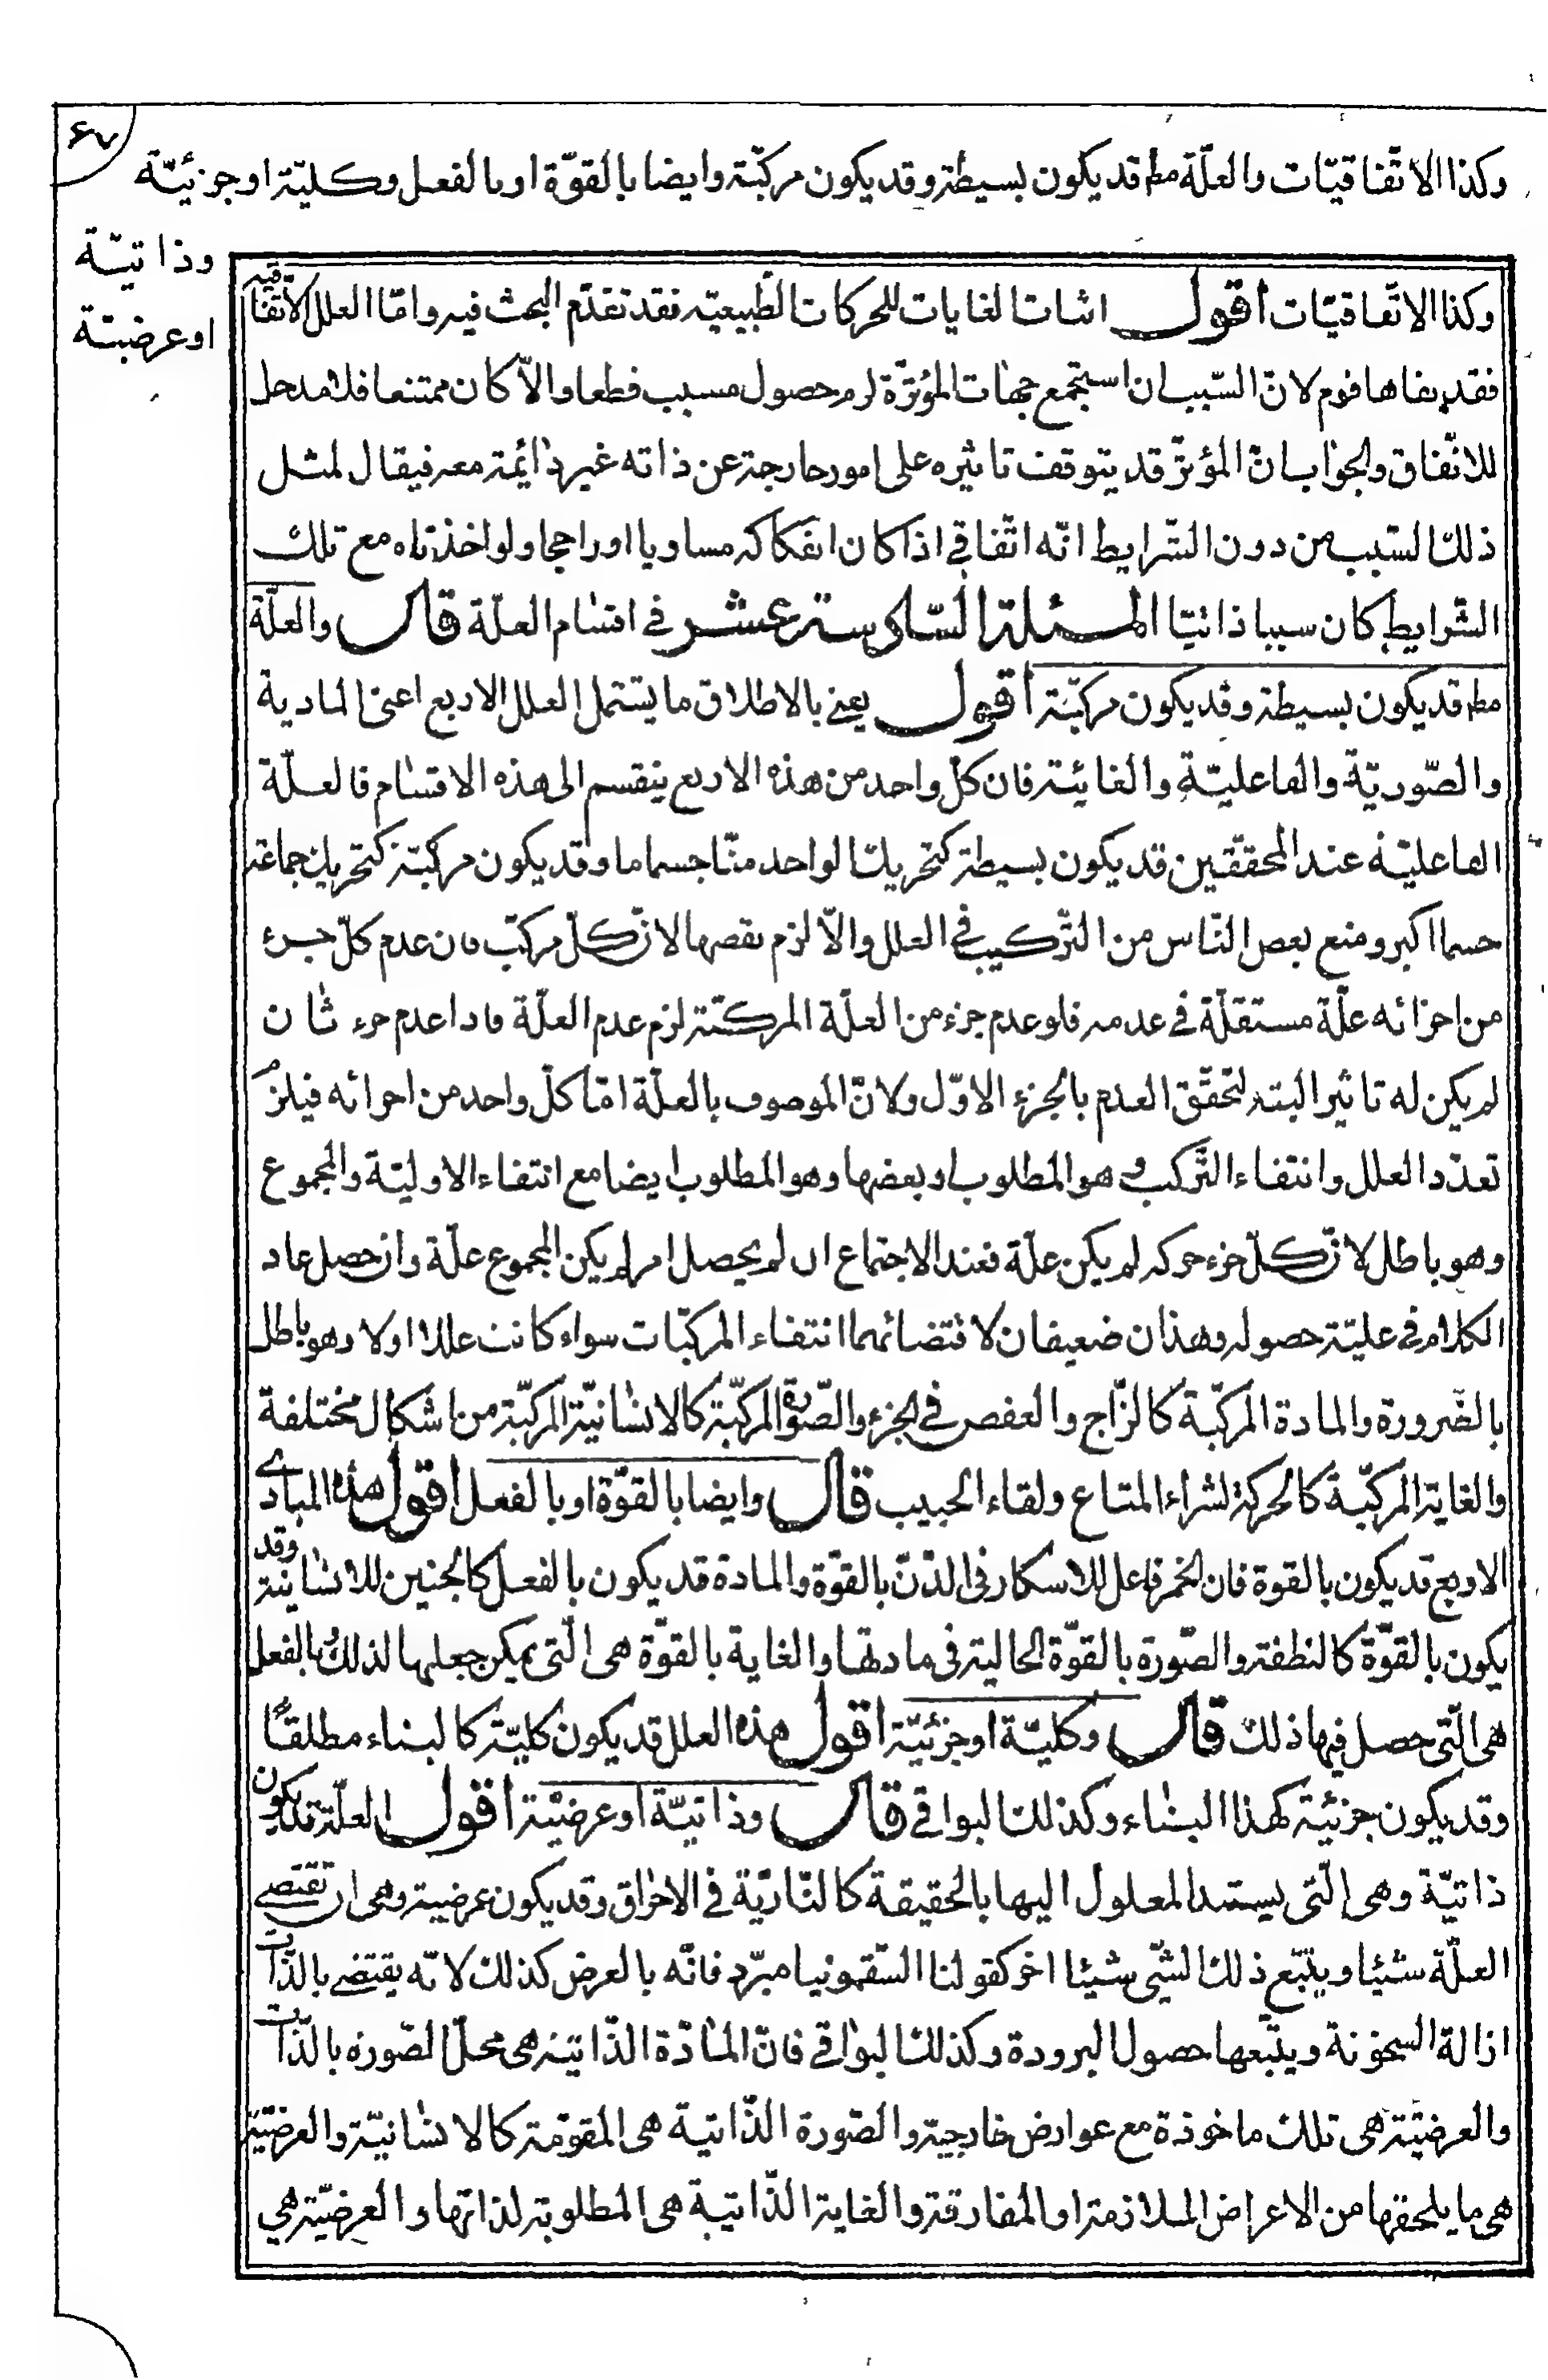 ٦٧
وكذا الاتّفاقيّات والعلّة مط قد يكون بسيطة وقد يكون مركبّة وايضا بالقوّة او بالفعل وكليّة او جزئيّة
وذاتيّة
او عرضيّة
وكذا الاتّفاقيّات اقول اثبات الغايات للحركات الطّبيعيّة فقد تقدّم البحث فيه وامّا العلل الاتّفاقيه
فقد نفاها قوم لانّ السّبب ان استجمع جهات المؤثرّة لزم حصول مسبب قطعا والاّ كان ممتنعا فلا مدخل
للاتّفاق والجواب انّ المؤثرّ قد يتوقف تاثيره على امور خارجة عن ذاته غير دائمة معه فيقال لمثل
ذلك السّبب من دون الشّرايط انّه اتّفاقي اذا كان انفكاكه مساويا او راجحا ولو اخذناه مع تلك
الشّرايط كان سببا ذاتيّا المسئلة السّادسة عشر في اقسام العلّة قال والعلّة
مط قد يكون بسيطة وقد يكون مركبّة اقول يعني بالاطلاق ما يشتمل العلل الاربع اعنى المادية
والصّوريّة والفاعليّة والغائية فان كلّ واحد من هذه الاربع ينقسم الى هذه الاقسام فالعلّة
الفاعليّة عند المحققين قد يكون بسيطة كتحريك الواحد منّا جسما ما وقد يكون مركبّة كتحريك جماعة
جسما اكبر ومنع بعض النّاس من التّركيب في العلل والاّ لزم نقضها لانّ كلّ مركبّ فان عدم كلّ جزء
من اجزائه علّة مستقلّة في عدمه فلو عدم جزء من العلّة المركبّة لزم عدم العلّة فاذا عدم جزء ثان
لم يكن له تاثير البتة لتحقّق العدم بالجزء الاوّل ولانّ الموصوف بالعلّة امّا كلّ واحد من اجزائه فيلزم
تعدّد العلل وانتفاء التّركب وهو المطلوب او بعضها وهو المطلوب ايضا مع انتفاء الاوليّة والمجموع
وهو باطل لانّ كلّ جزء لم يكن علّة فعند الاجتماع ان لم يحصل امر لم يكن المجموع علّة وان حصل عاد
الكلام في عليّة حصوله وهذان ضعيفان لاقتضائهما انتفاء المركبّات سواء كانت عللا اولا وهو باطل
بالضّرورة والمادة المركبّة كالزّاج والعفص في الجزء والصّورة المركبّة كالانسانيّة المركبّة من اشكال مختلفة
والغاية المركبّة كالحركة لشراء المتاع ولقاء الحبيب قال وايضا بالقوّة او بالفعل اقول هذه المبادي
الاربع قد يكون بالقوة فان الخمر فاعل للاسكار في الدّنّ بالقوّة والمادة قد يكون بالفعل كالجنين للانسانية وقد
يكون بالقوّة كالنطفة والصّورة بالقوّة الحالية في مادتها والغاية بالقوّة هى الّتى يمكن جعلها لذلك وبالفعل
هى الّتى حصل فيها ذلك قال وكليّة او جزئيّة اقول هذه العلل قد يكون كليّة كالبناء مطلقًا
وقد يكون جزئية كهذا البناء وكذلك البواقي قال وذاتيّة او عرضيّة اقول العلّة قد يكون
ذاتيّة وهى الّتى يستند المعلول اليها بالحقيقة كالنّاريّة في الاحراق وقد يكون عرضية وهى ان تقتضي
العلّة شيئا ويتبع ذلك الشّي شيئا اخر كقولنا السّقمونيا مبرّد فانّه بالعرض كذلك لانّه يقتضي بالذّات
ازالة السخونة ويتّبعها حصول البرودة وكذلك البواقي فانّ المادّة الذّاتية هى محلّ الصّورة بالذّات
والعرضيّة هى تلك ماخوذة مع عوارض خارجية والصّورة الذّاتية هى المقوّمة كالانسانيّة والعرضيّة
هى ما يلحقها من الاعراض الملازمة او المفارقة والغاية الذّاتية هى المطلوبة لذاتها والعرضيّة هي